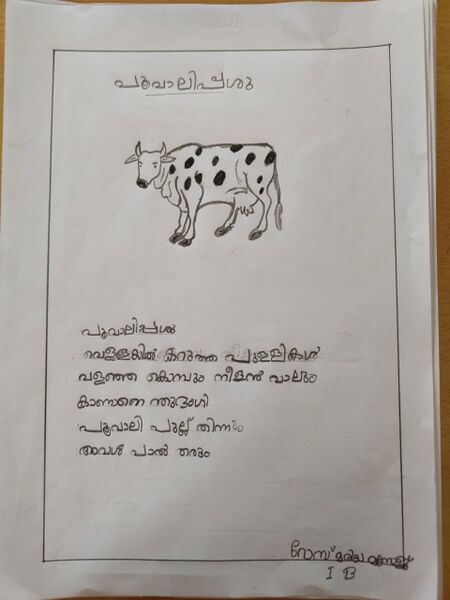 പൂവാലിപ്പശു
പൂവാലിപ്പശു
വെള്ളയിൽ കറുത്ത പുള്ളികൾ
വളഞ്ഞ കൊമ്പും നീളൻ വാലും
കാണാനെന്തുഭംഗി
പൂവാലി പുല്ല് തിന്നും
അവൾ പാൽ തരും
റോസ് മരിയ
I B